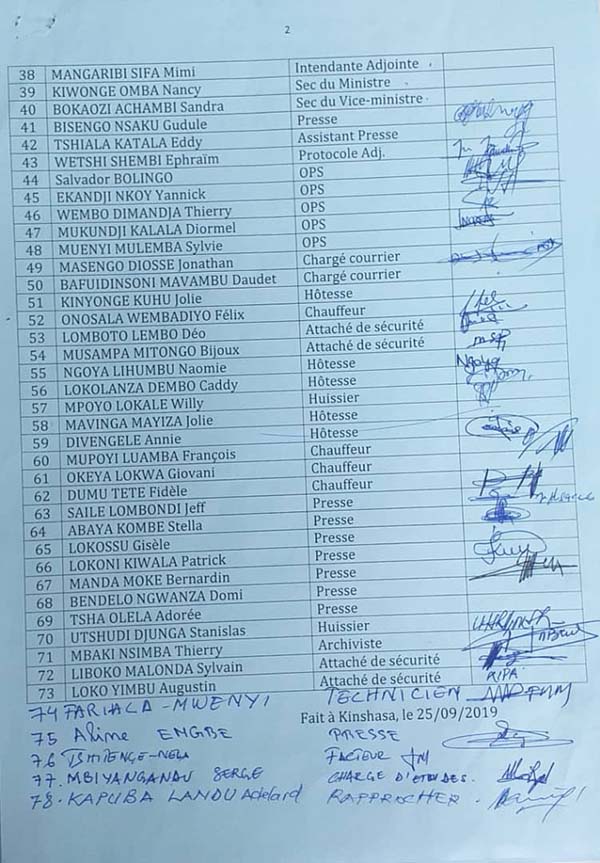 2
38 MANGARIBI SIFA Mimi Intendante Adjointe
39 KIWONGE OMBA Nancy Sec du Ministre
40 BOKAOZI ACHAMBI Sandra Sec du Vice-ministre
41 BISENGO NSAKU Gudule Presse
42 TSHIALA KATALA Eddy Assistant Presse
43 WETSHI SHEMBI Ephraïm Protocole Adj.
44 Salvador BOLINGO OPS
45 EKANDJI NKOY Yannick OPS
46 WEMBO DIMANDJA Thierry OPS
47 MUKUNDJI KALALA Diormel OPS
48 MUENYI MULEMBA Sylvie OPS
49 MASENGO DIOSSE Jonathan Chargé courrier
50 BAFUIDINSONI MAVAMBU Daudet Chargé courrier
51 KINYONGE KUHU Jolie Hôtesse
52 ONOSALA WEMBADIYO Félix Chauffeur
53 LOMBOTO LEMBO Déo Attaché de sécurité
54 MUSAMPA MITONGO Bijoux Attaché de sécurité
55 NGOYA LIHUMBU Naomie Hôtesse Ngoya
56 LOKOLANZA DEMBO Caddy Hôtesse
57 MPOYO LOKALE Willy Huissier
58 MAVINGA MAYIZA Jolie Hôtesse
59 DIVENGELE Annie Hôtesse
60 MUPOYI LUAMBA François Chauffeur
61 OKEYA LOKWA Giovani Chauffeur
62 DUMU TETE Fidèle Chauffeur
63 SAILE LOMBONDI Jeff Presse
64 ABAYA KOMBE Stella Presse
65 LOKOSSU Gisèle Presse
66 LOKONI KIWALA Patrick Presse
67 MANDA MOKE Bernardin Presse
68 BENDELO NGWANZA Domi Presse
69 TSHA OLELA Adorée Presse
70 UTSHUDI DJUNGA Stanislas Huissier
71 MBAKI NSIMBA Thierry Archiviste
72 LIBOKO MALONDA Sylvain Attaché de sécurité
73 LOKO YIMBU Augustin Attaché de sécurité
74 FARIALA - MWENYI TECHNICIEN
Fait à Kinshasa, le 25/09/2019
75 Aline ENGBE PRESSE
76 FACTEUR
77. MBIYANGANDU SERGE CHARGE D'ETUDES.
78. KAPUBA LANDU Adelard RAPPROCHER.